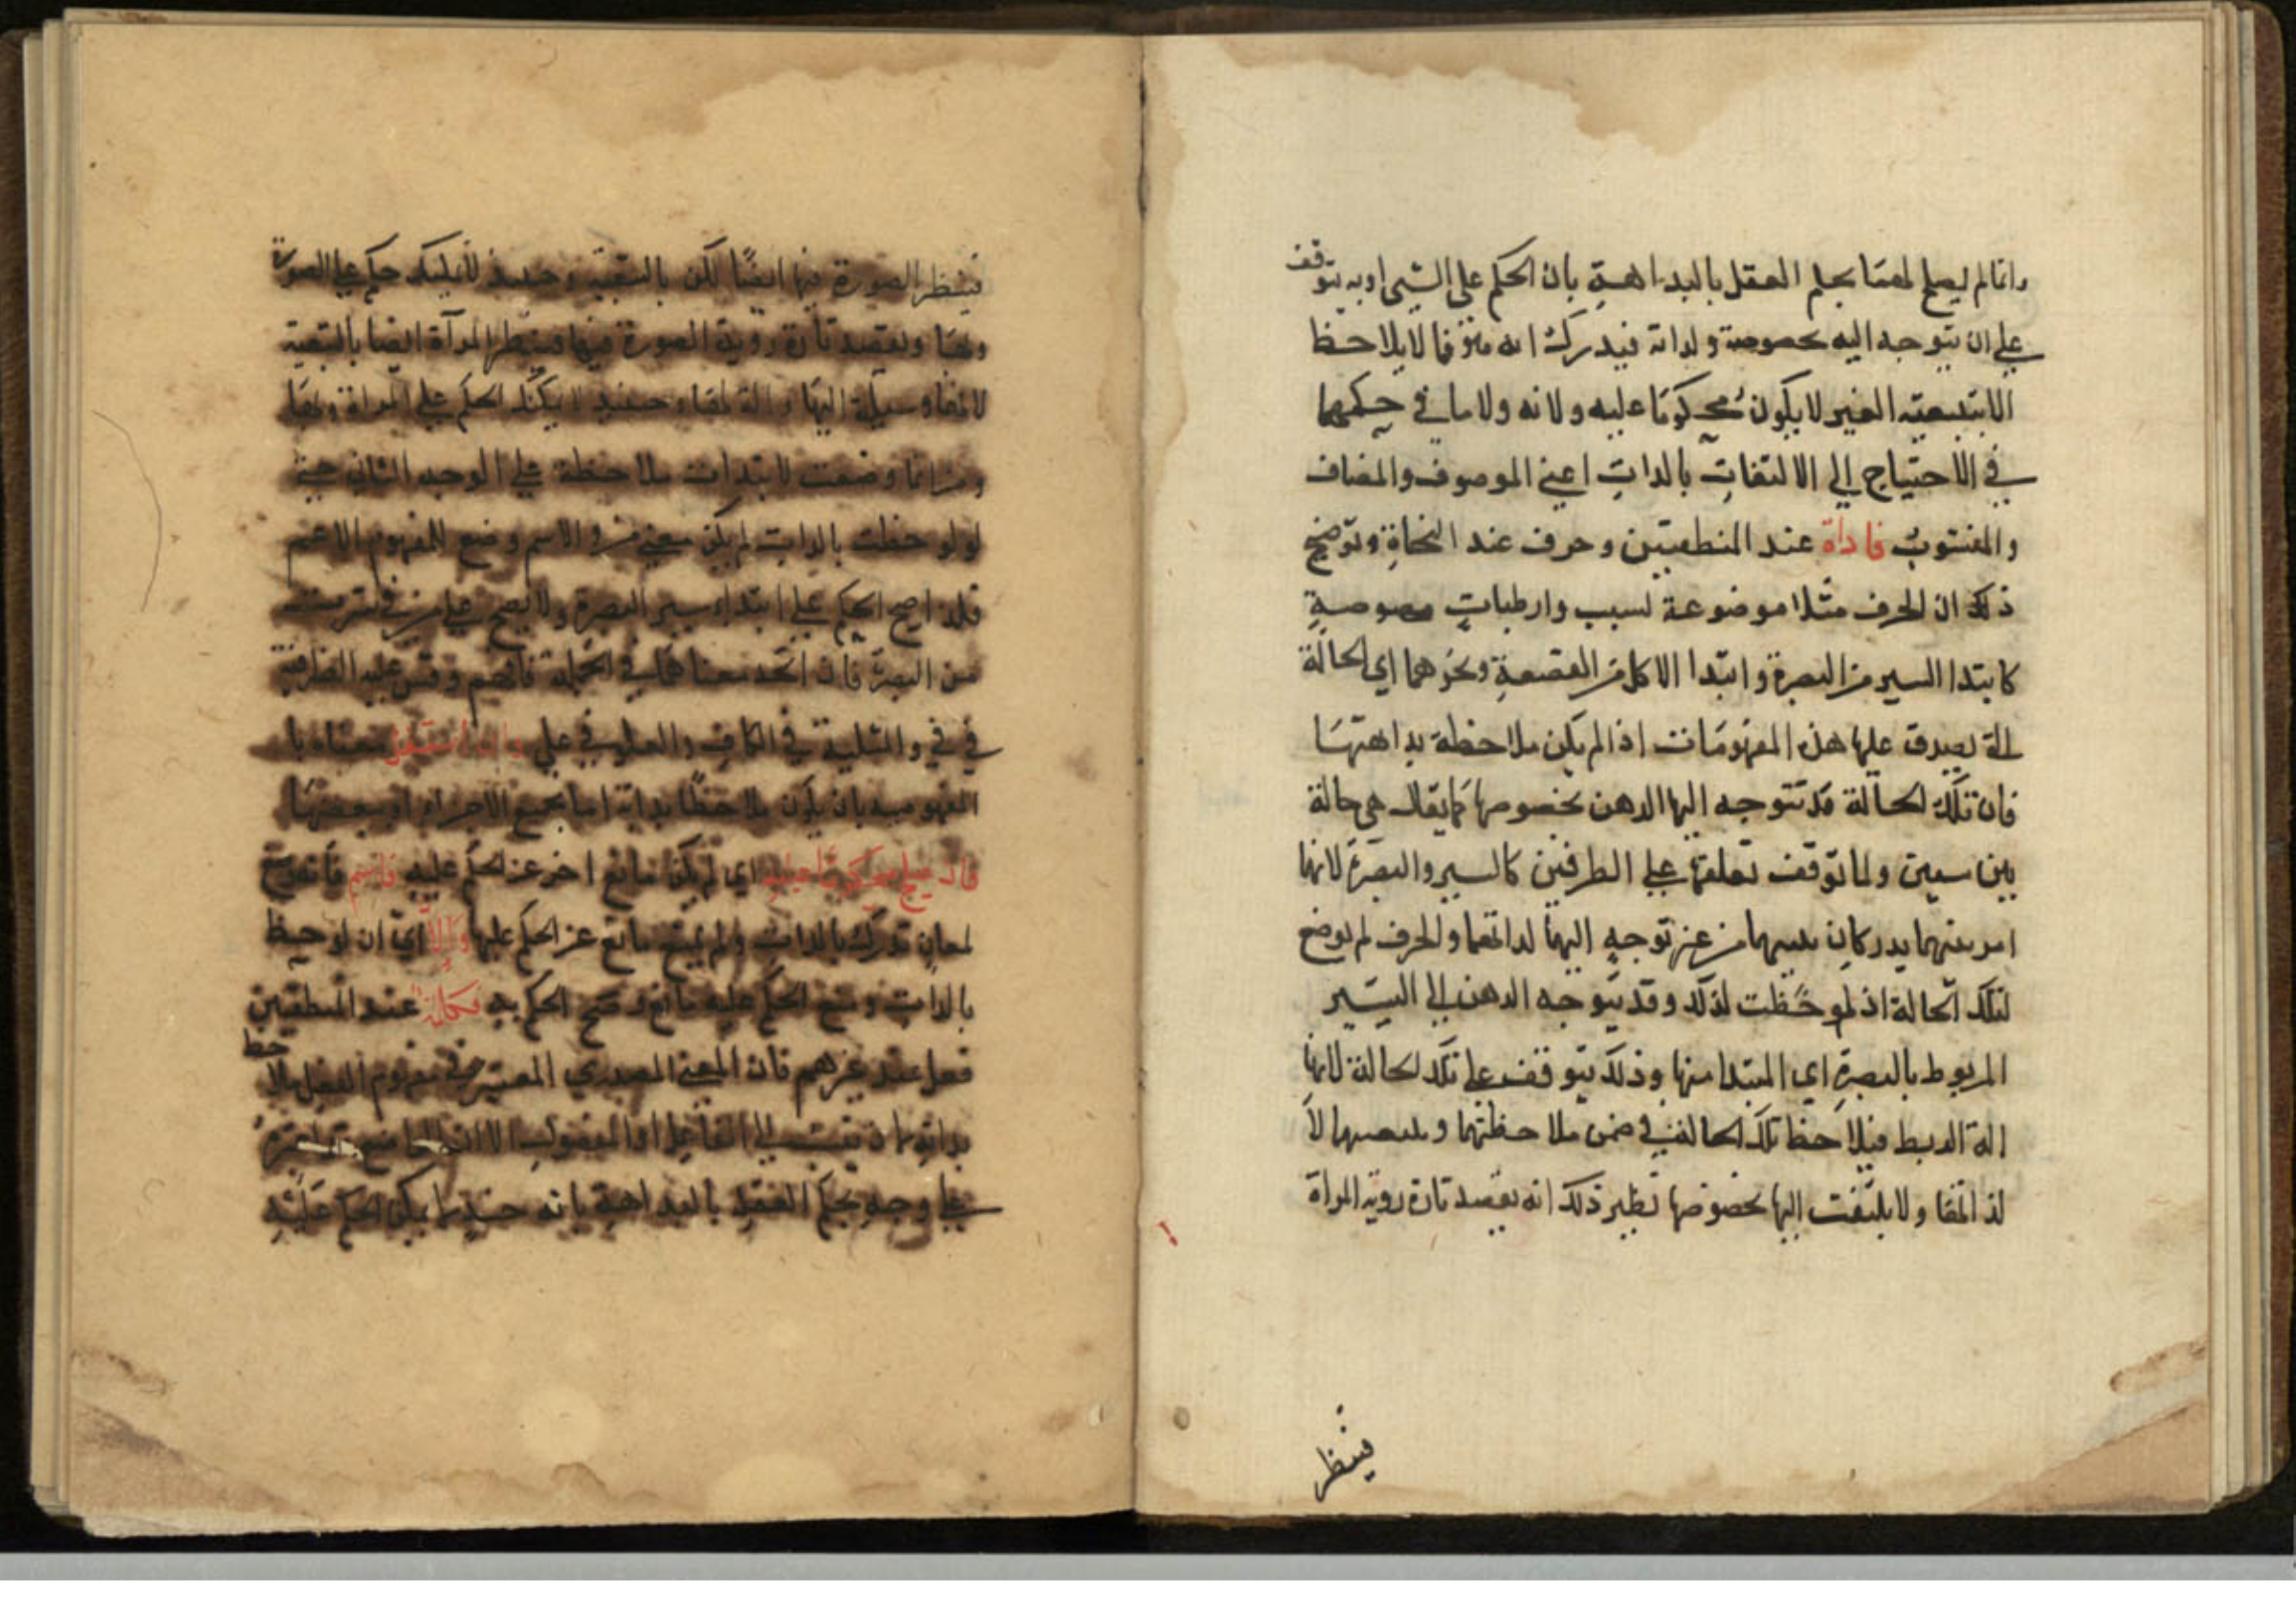 وانما لم يصلح لهما بحلم العقل بالبداهة بان الحكم على الشيى او به يتوقف
على ان يتوجه اليه بخصوصه ولذاته فيدرك انه متوقفا لا يلاحظ
الا بتبعية الغير لا يكون محكوما عليه ولا به ولا ما في حكمهما
في الاحتياج الى الالتفات بالدات اعني الموصوف والمضاف
والمنسوب فاداة عند المنطقيين وحرف عند النحاة وتوضيح
ذلك ان الحرف مثلا موضوعة لسبب وارطبات مصوصة
كابتدا السير من البصرة وابتدا الاكل من القصعة ونحوهما اي الحالة
الة يصدق عليها هذه المفهومات اذا لم يكن ملاحظة بداهتها
فان تلك الحالة قد تتوجه اليها الدهن بخصوصها كما يقال هي حالة
بين سيين ولما توقف تعلقها على الطرفين كالسير والبصرة لانها
امر بينهما يدركان من غير توجه اليها لداتها والحرف لم يوضع
لتلك الحالة اذ لو حظت لذلك وقد يتوجه الدهن الى السير
المربوط بالبصرة اي المبتدا منها وذلك يتوقف على تلك الحالة لانها
الة الربط فيلاحظ تلك الحالة في ضمن ملاحظتهما ولا
لذاتها ولا يلتفت اليها بخصوصها نظير ذلك انه يقصد تارة روية المراة
فينظر
فينظر الصورة فيها ايضًا لكن بالتبعية وحينئذ لا يمكنك حكم على الصورة
وبها ويقصد تارة روية الصورة فيها فينظر المرآة ايضا بالتبعية
وسيلة اليها والة لها وحينئذ لا يمكنك الحكم على المراة وبها
ومن انما وضعت لابتدات ملاحظة على الوجه الثاني حيث
لو لوحظت بالدات لم يكن معنى من والاسم وضع للمفهوم الاعم
فلذا صح الحكم على ابتداء سير البصرة ولا يصح على من في سرت
من البصرة فان اتحد معناهما في الجملة فافهم وقس عليه الظرفية
في في والمثلية في الكاف والعلو في على وان استقل معناه با
المفهومية بان يكون ملاحظًا بداته اما بجميع الاجزاء او ببعضها
فان صلح محكوما عليه اي لم يكن مانع اخر عن الحكم عليه فاسم فانه وضع
لمعان تدرك بالدات ولم يمنع مانع عن الحكم عليها والا اي ان لوحيظ
بالدات ومنع الحكم عليه مانع وصح الحكم به فكلمة عند المنطقيين
فعل عند غيرهم فان المعنى المصدري المعتبر في مفهوم الفعل يلاحظ
بداته ينسب الى الفاعل او المفعول الا ان
على وجه بحكم العقل بالبداهة بانه حينئذ لا يمكن الحكم عليه